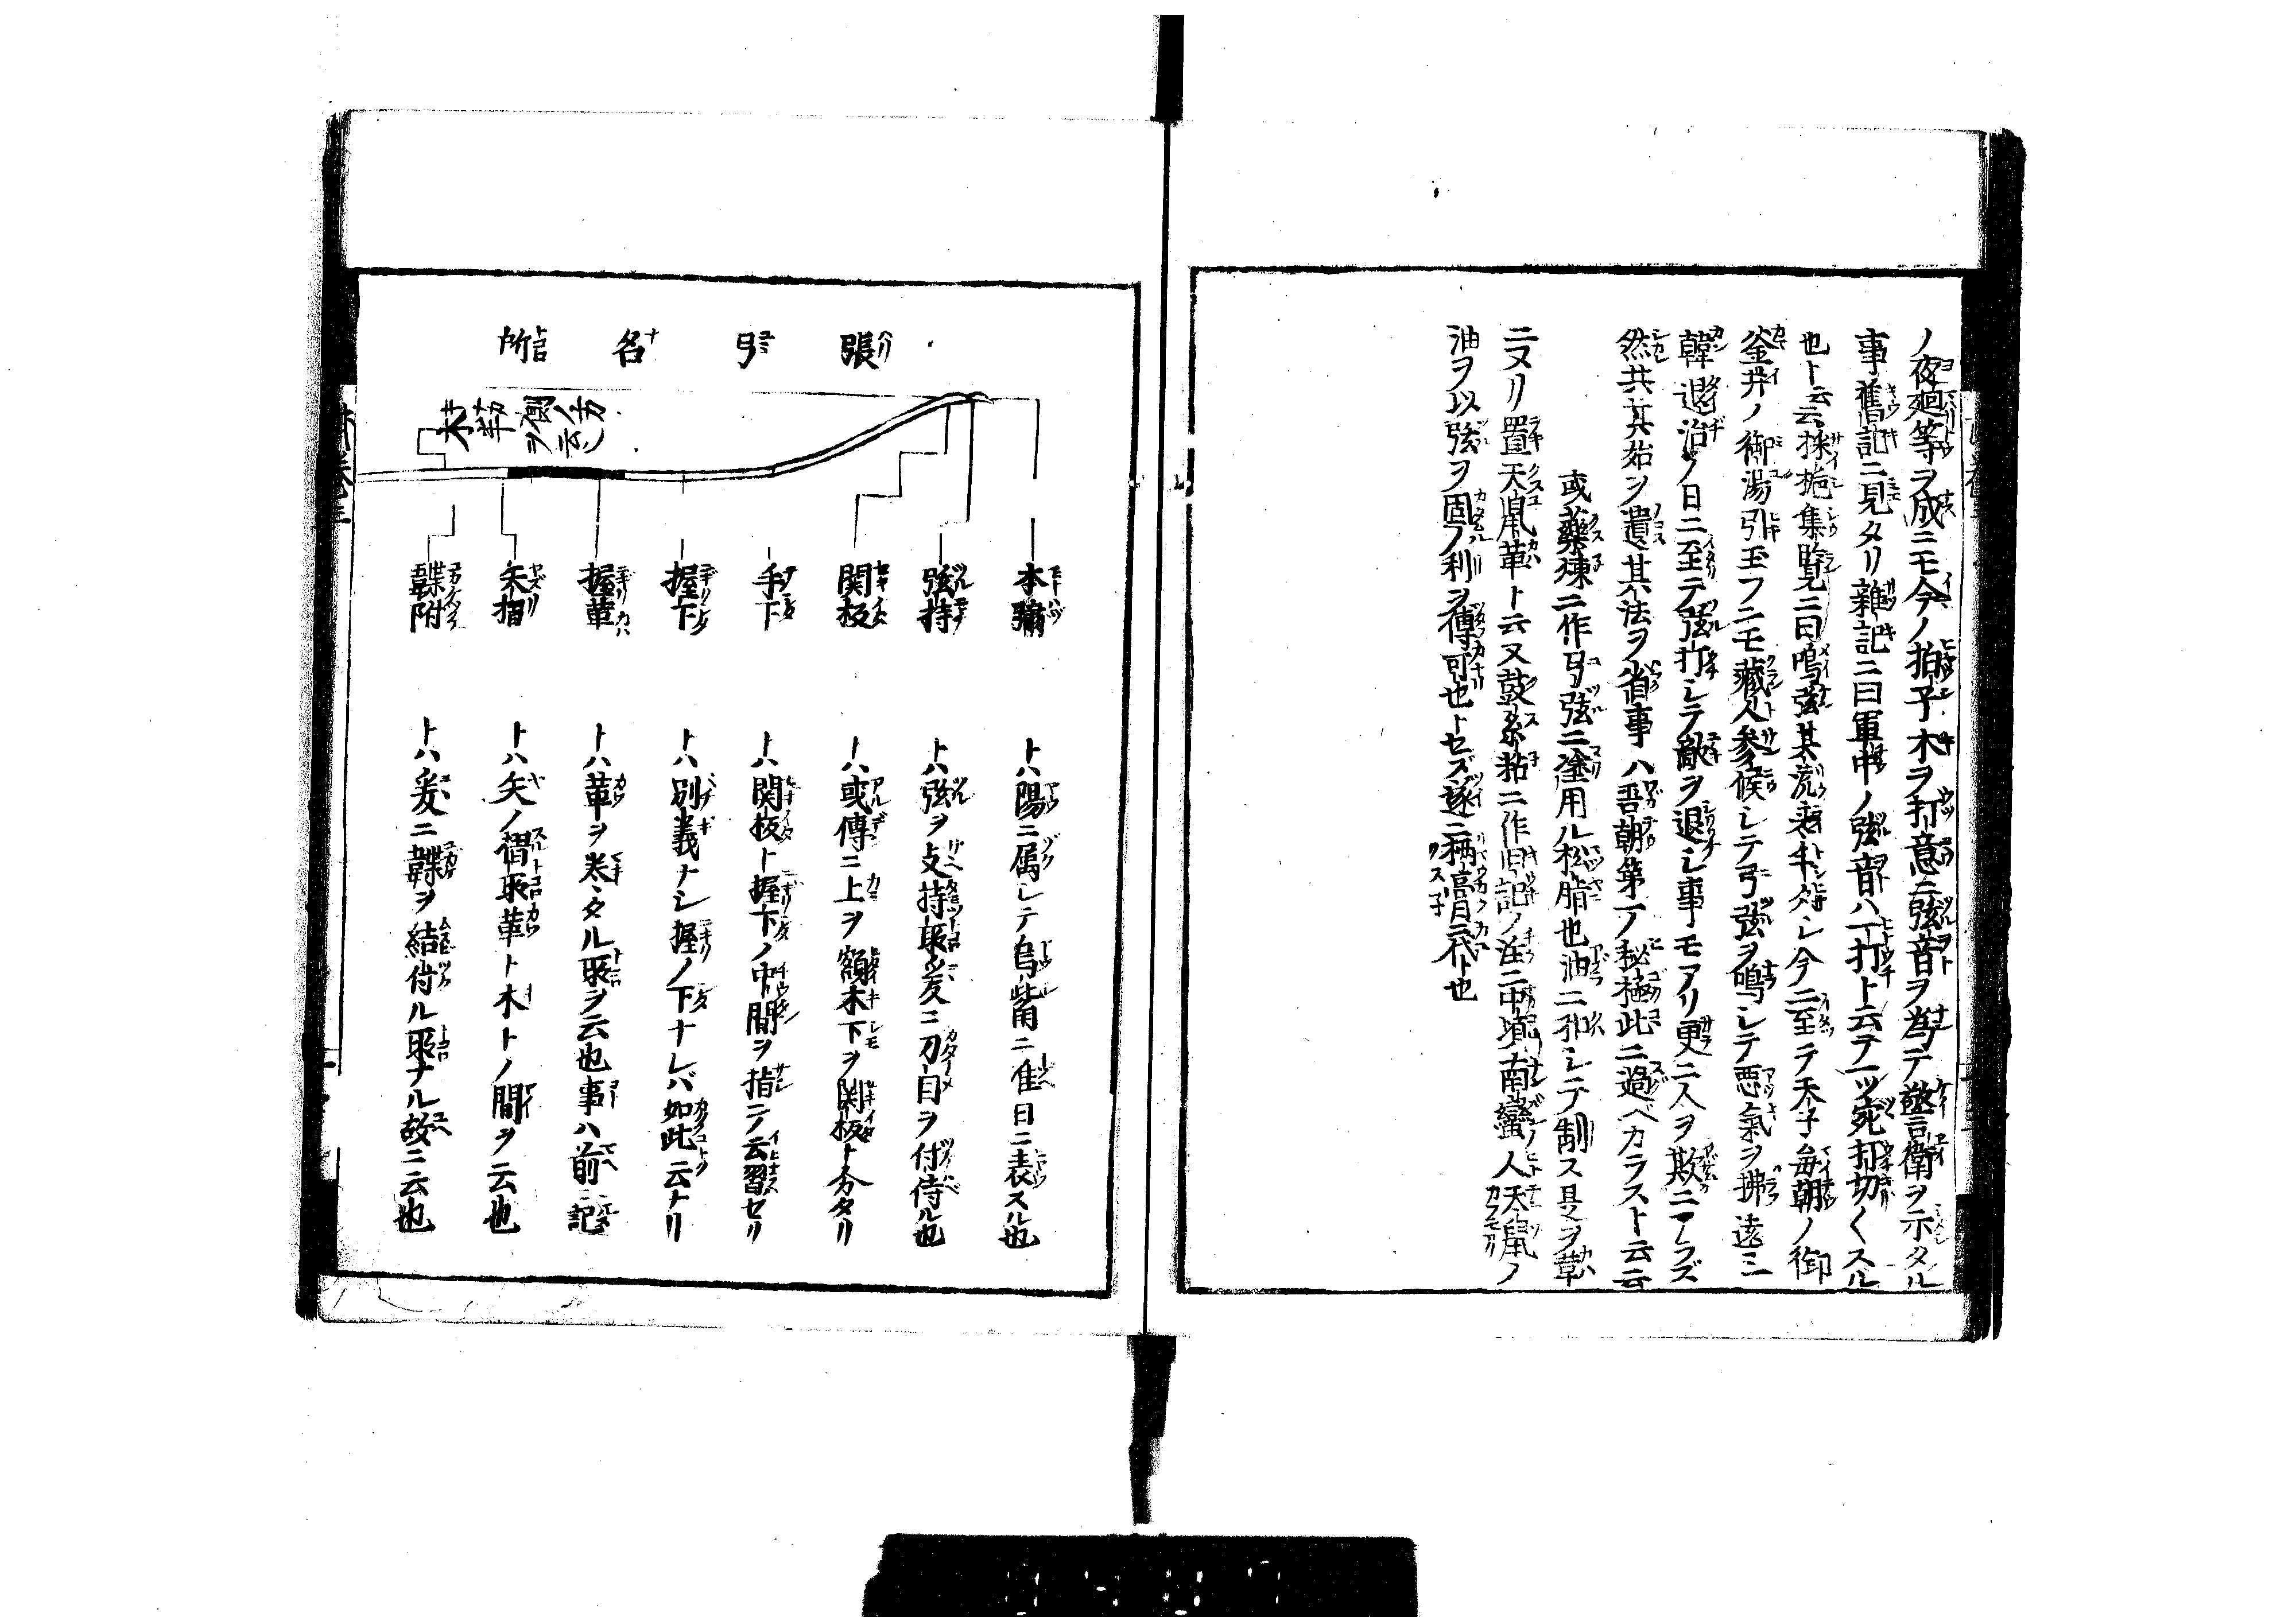 ノ夜廻等ヲ成ニモ今ノ拍子木ヲ打意ニ弦音ヲ為テ警衛ヲ示タル
事舊記ニ見タリ雜記ニ曰軍中ノ弦音ハ一打ト云テ一ッ宛打切〱スル
也ト云云採摭集覽ニ曰鳴弦其流 シ今ニ至テ天子毎朝ノ御
釜井ノ御湯引玉フニモ藏人参候シテ弓弦ヲ鳴シテ悪氣ヲ拂遠ミ
韓退治ノ日ニ至テ弦打シテ敵ヲ退シ事モアリ更ニ人ヲ欺ニアラズ
然共其始ヲ遺其法ヲ省事ハ吾朝第一ノ秘極此ニ過ベカラスト云云
或藥煉ニ作弓弦ニ塗用ル松脂也油ニ和シテ制ス是ヲ革
ニヌリ置天鼠革ト云又鼓糸粘ニ作旧記ノ注ニ中頃南蠻人天鼠ノ
油ヲ以弦ヲ固ノ利ヲ傳可也トセズ遂ニ稱 代ト也
張弓名所
村
木弣ヲ側ノ方云
本彇 トハ陽ニ属シテ烏觜ニ准日ニ表スル也
弦持 トハ弦ヲ支持所爰ニ刀目ヲ付侍ル也
関板 トハ或傳ニ上ヲ額木下ヲ関板ト分タリ
手下 トハ関板ト握下ノ中間ヲ指テ云習セリ
握下 トハ別義ナシ握ノ下ナレバ如此云ナリ
握革 トハ革ヲ巻タル所ヲ云也事ハ前記
矢摺 トハ矢ノ摺所革ト木トノ間ヲ云也
韘附 トハ爰ニ韘ヲ結付ル所ナル故ニ云也